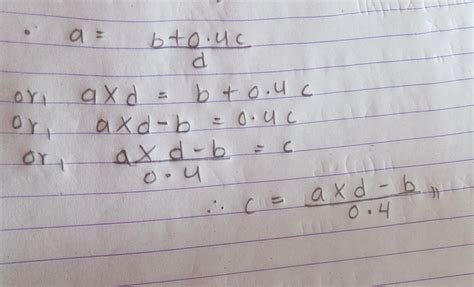 • a = b+0.4c / d
or, a×d = b+0.4c
or, a×d-b = 0.4c
or, a×d-b / 0.4 = c
∴ c = a×d-b / 0.4 //